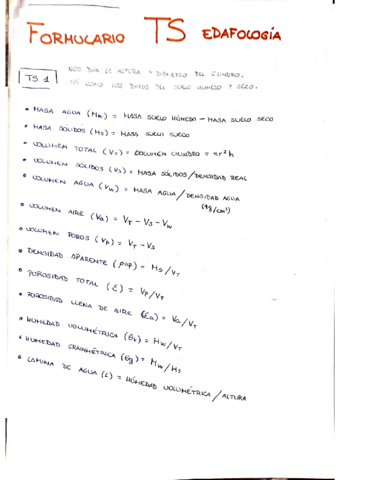 FORMULARIO TS EDAFOLOGÍA
TS 1
NOS DAN LA ALTURA Y DIÁMETRO DEL CILINDRO.
ASÍ COMO LOS DATOS DEL SUELO HÚMEDO Y SECO.
• MASA AGUA (Mw) = MASA SUELO HÚMEDO - MASA SUELO SECO
• MASA SÓLIDOS (Ms) = MASA SUELO SUECO
• VOLUMEN TOTAL (VT) = VOLUMEN CILINDRO = πr²h
• VOLUMEN SÓLIDOS (Vs) = MASA SÓLIDOS/DENSIDAD REAL
• VOLUMEN AGUA (Vw) = MASA AGUA/DENSIDAD AGUA
(1g/cm³)
• VOLUMEN AIRE (Va) = VT - Vs - Vw
• VOLUMEN POROS (Vp) = VT - Vs
• DENSIDAD APARENTE (ρap) = Ms/VT
• POROSIDAD TOTAL (ε) = Vp/VT
• POROSIDAD LLENA DE AIRE (εa) = Va/VT
• HUMEDAD VOLUMÉTRICA (θv) = Mw/VT
• HUMEDAD GRAVIMÉTRICA (θg) = Mw/Ms
• LAMINA DE AGUA (L) = HÚMEDAD VOLUMÉTRICA / ALTURA